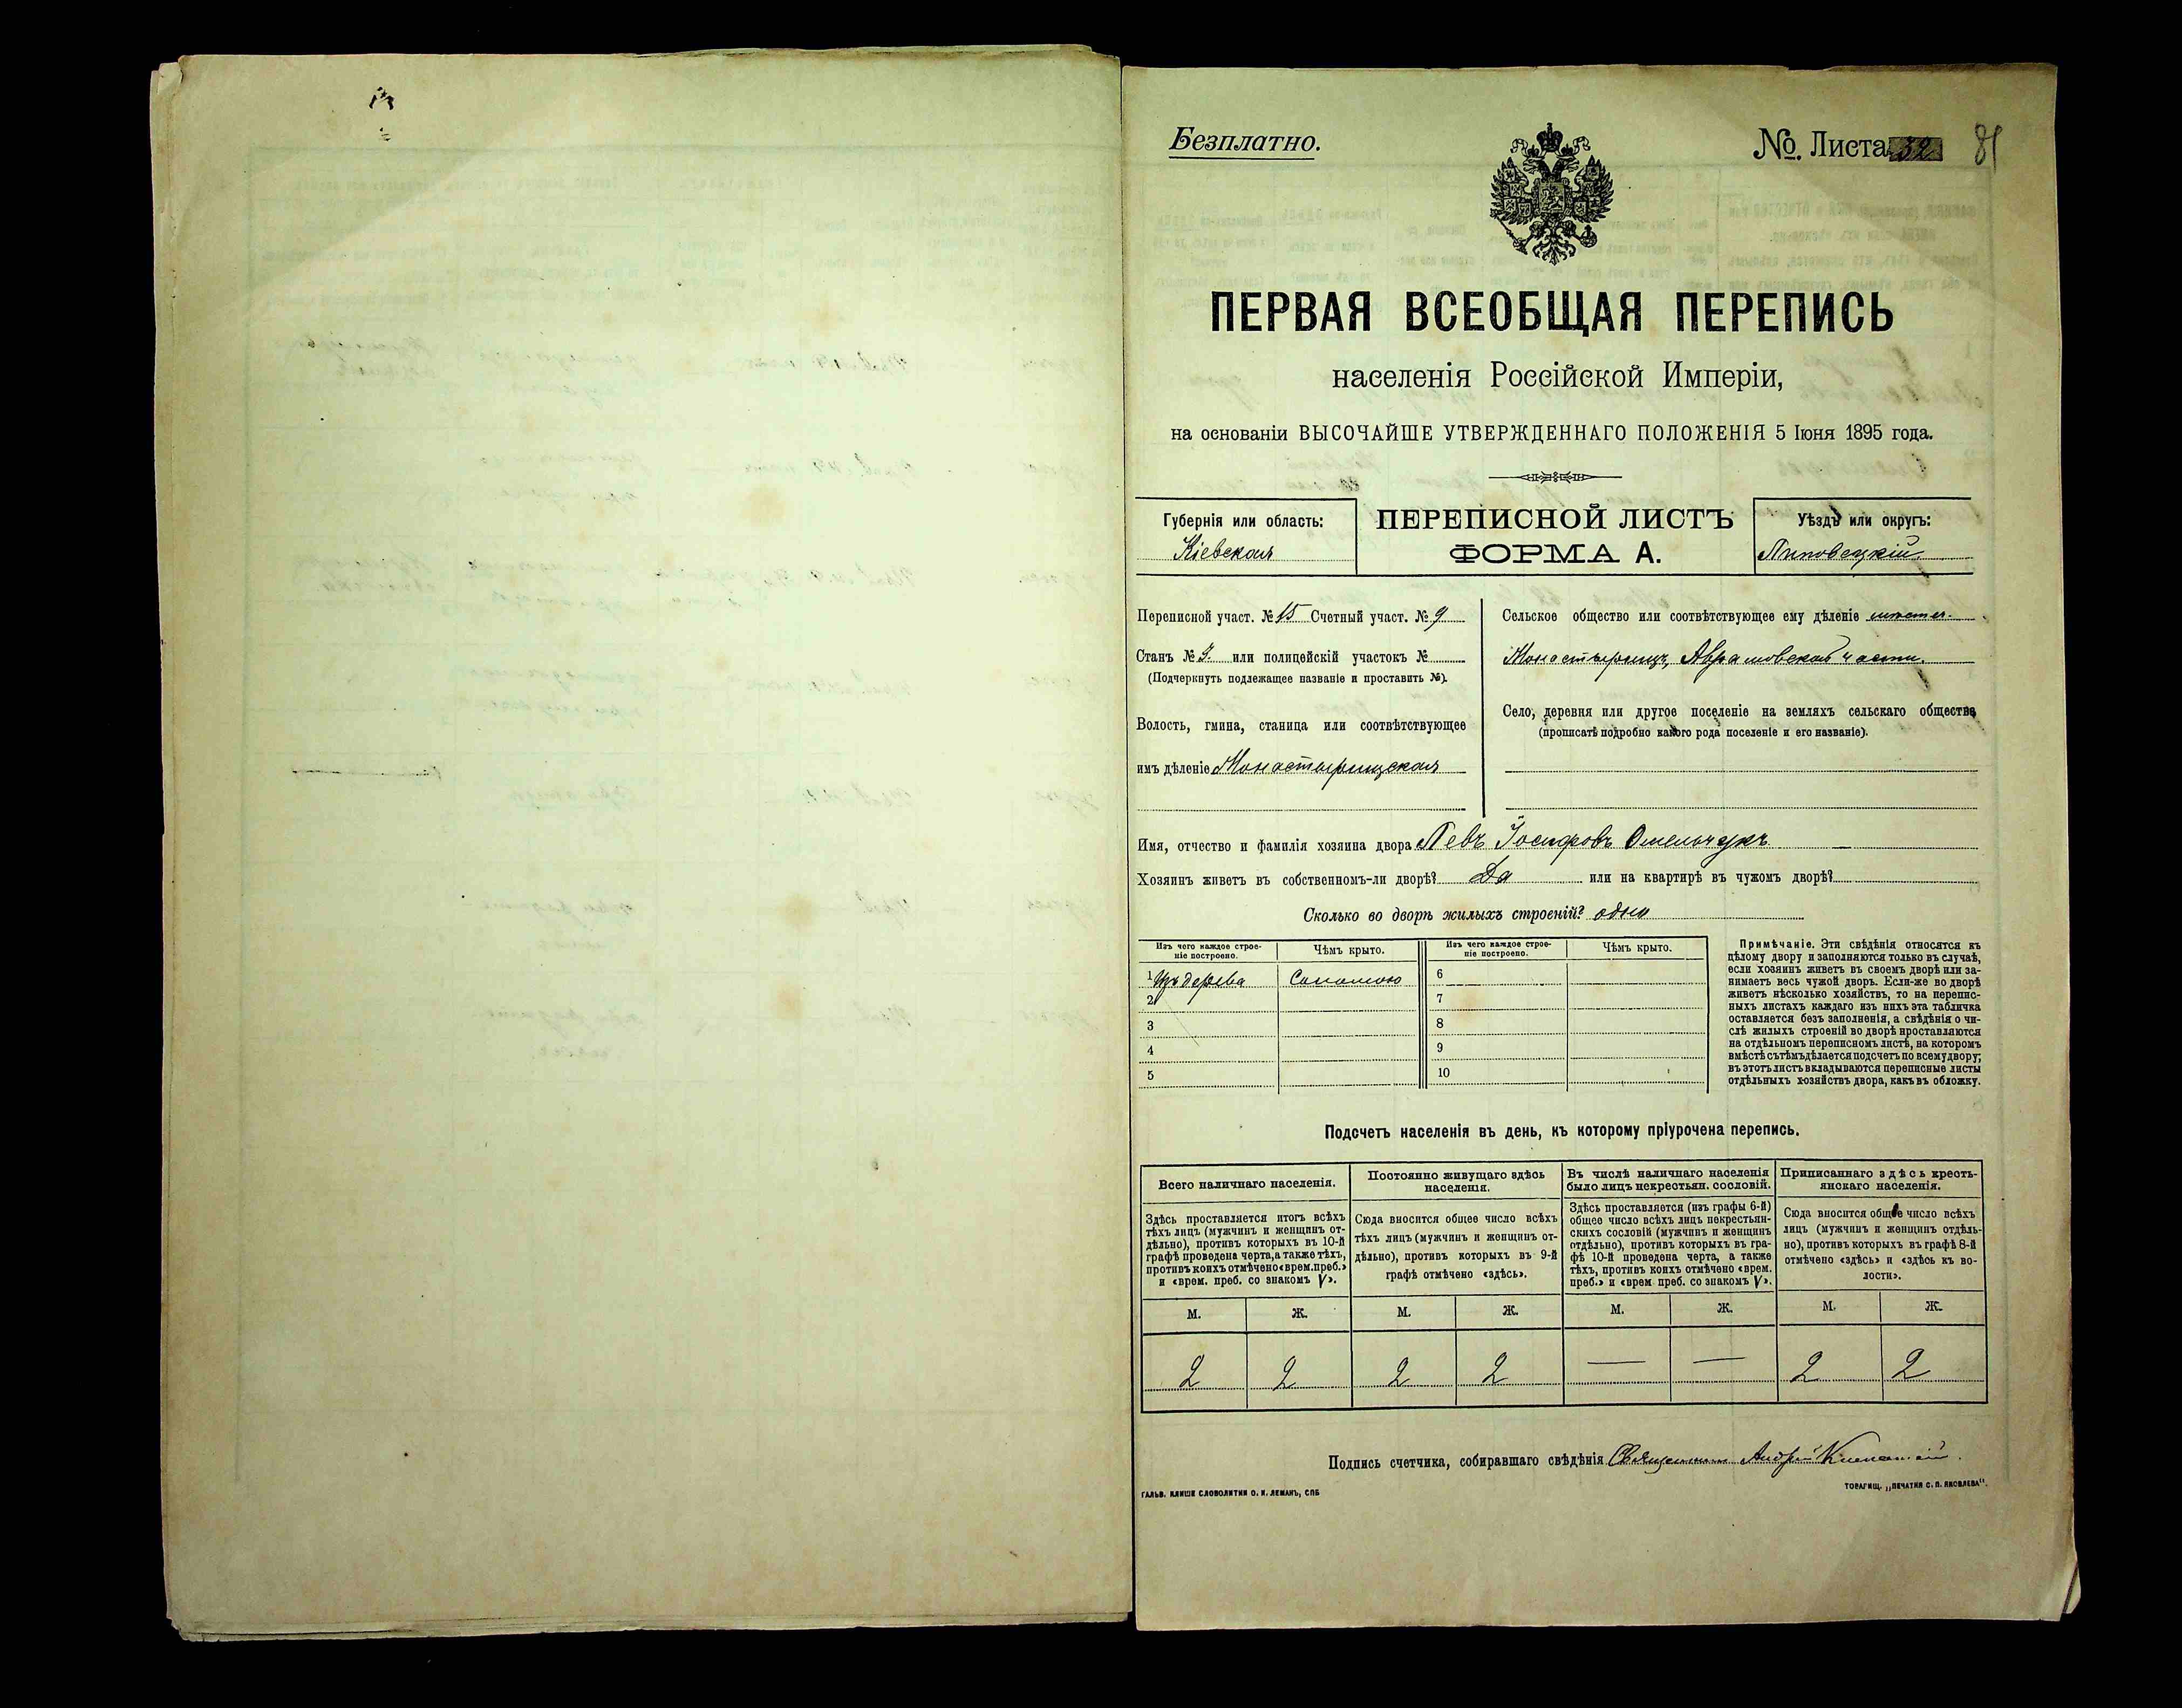 Безплатно.
№. Листа 32 81
ПЕРВАЯ ВСЕОБЩАЯ ПЕРЕПИСЬ
населенія Россійской Имперіи,
на основаніи ВЫСОЧАЙШЕ УТВЕРЖДЕННАГО ПОЛОЖЕНІЯ 5 Іюня 1895 года.
Губернія или область:
Кіевская
ПЕРЕПИСНОЙ ЛИСТЪ
ФОРМА А.
Уѣздъ или округъ:
Липовецкій
Переписной участ. № 15 Счетный участ. № 9
Станъ № 3. или полицейскій участокъ №
(Подчеркнуть подлежащее названіе и проставить №).
Волость, гмина, станица или соотвѣтствующее
имъ дѣленіе Монастырищская
Сельское общество или соотвѣтствующее ему дѣленіе
Монастырище, Аврамовской части.
Село, деревня или другое поселеніе на земляхъ сельскаго общества
(прописать подробно какого рода поселеніе и его названіе).
Имя, отчество и фамилія хозяина двора Левъ Іосифовъ Омельчукъ
Хозяинъ живетъ въ собственномъ-ли дворѣ? Да или на квартирѣ въ чужомъ дворѣ?
Сколько во дворѣ жилыхъ строеній? одно
Изъ чего каждое строе-
ніе построено.
Чѣмъ крыто.
Изъ чего каждое строе-
ніе построено.
Чѣмъ крыто.
1 Изъ дерева Соломою 6
2 7
3 8
4 9
5 10
Примѣчаніе. Эти свѣдѣнія относятся къ
цѣлому двору и заполняются только въ случаѣ,
если хозяинъ живетъ въ своемъ дворѣ или за-
нимаетъ весь чужой дворъ. Если-же во дворѣ
живетъ нѣсколько хозяйствъ, то на перепис-
ныхъ листахъ каждаго изъ нихъ эта табличка
оставляется безъ заполненія, а свѣдѣнія о чи-
слѣ жилыхъ строеній во дворѣ проставляются
на отдѣльномъ переписномъ листѣ, на которомъ
вмѣстѣ съ тѣмъ дѣлается подсчетъ по всему двору;
въ этотъ листъ вкладываются переписные листы
отдѣльныхъ хозяйствъ двора, какъ въ обложку.
Подсчетъ населенія въ день, къ которому пріурочена перепись.
Всего наличнаго населенія.
Здѣсь проставляется итогъ всѣхъ
тѣхъ лицъ (мужчинъ и женщинъ от-
дѣльно), противъ которыхъ въ 10-й
графѣ проведена черта, а также тѣхъ,
противъ коихъ отмѣчено «врем. преб.»
и «врем. преб. со знакомъ V».
Постоянно живущаго здѣсь
населенія.
Сюда вносится общее число всѣхъ
тѣхъ лицъ (мужчинъ и женщинъ от-
дѣльно), противъ которыхъ въ 9-й
графѣ отмѣчено «здѣсь».
Въ числѣ наличнаго населенія
было лицъ некрестьян. сословій.
Здѣсь проставляется (изъ графы 6-й)
общее число всѣхъ лицъ некрестьян-
скихъ сословій (мужчинъ и женщинъ
отдѣльно), противъ которыхъ въ гра-
фѣ 10-й проведена черта, а также
тѣхъ, противъ коихъ отмѣчено «врем.
преб.» и «врем преб. со знакомъ V».
Приписаннаго здѣсь кресть-
янскаго населенія.
Сюда вносится общее число всѣхъ
лицъ (мужчинъ и женщинъ отдѣль-
но), противъ которыхъ въ графѣ 8-й
отмѣчено «здѣсь» и «здѣсь къ во-
лости».
М. Ж. М. Ж. М. Ж. М. Ж.
2 2 2 2 — — 2 2
Подпись счетчика, собиравшаго свѣдѣнія Священникъ Андрей
ГАЛЬВ. КЛИШЕ СЛОВОЛИТНИ О. И. ЛЕМАНЪ, СПБ
ТОВАРИЩ. „ПЕЧАТНЯ С. П. ЯКОВЛЕВА".